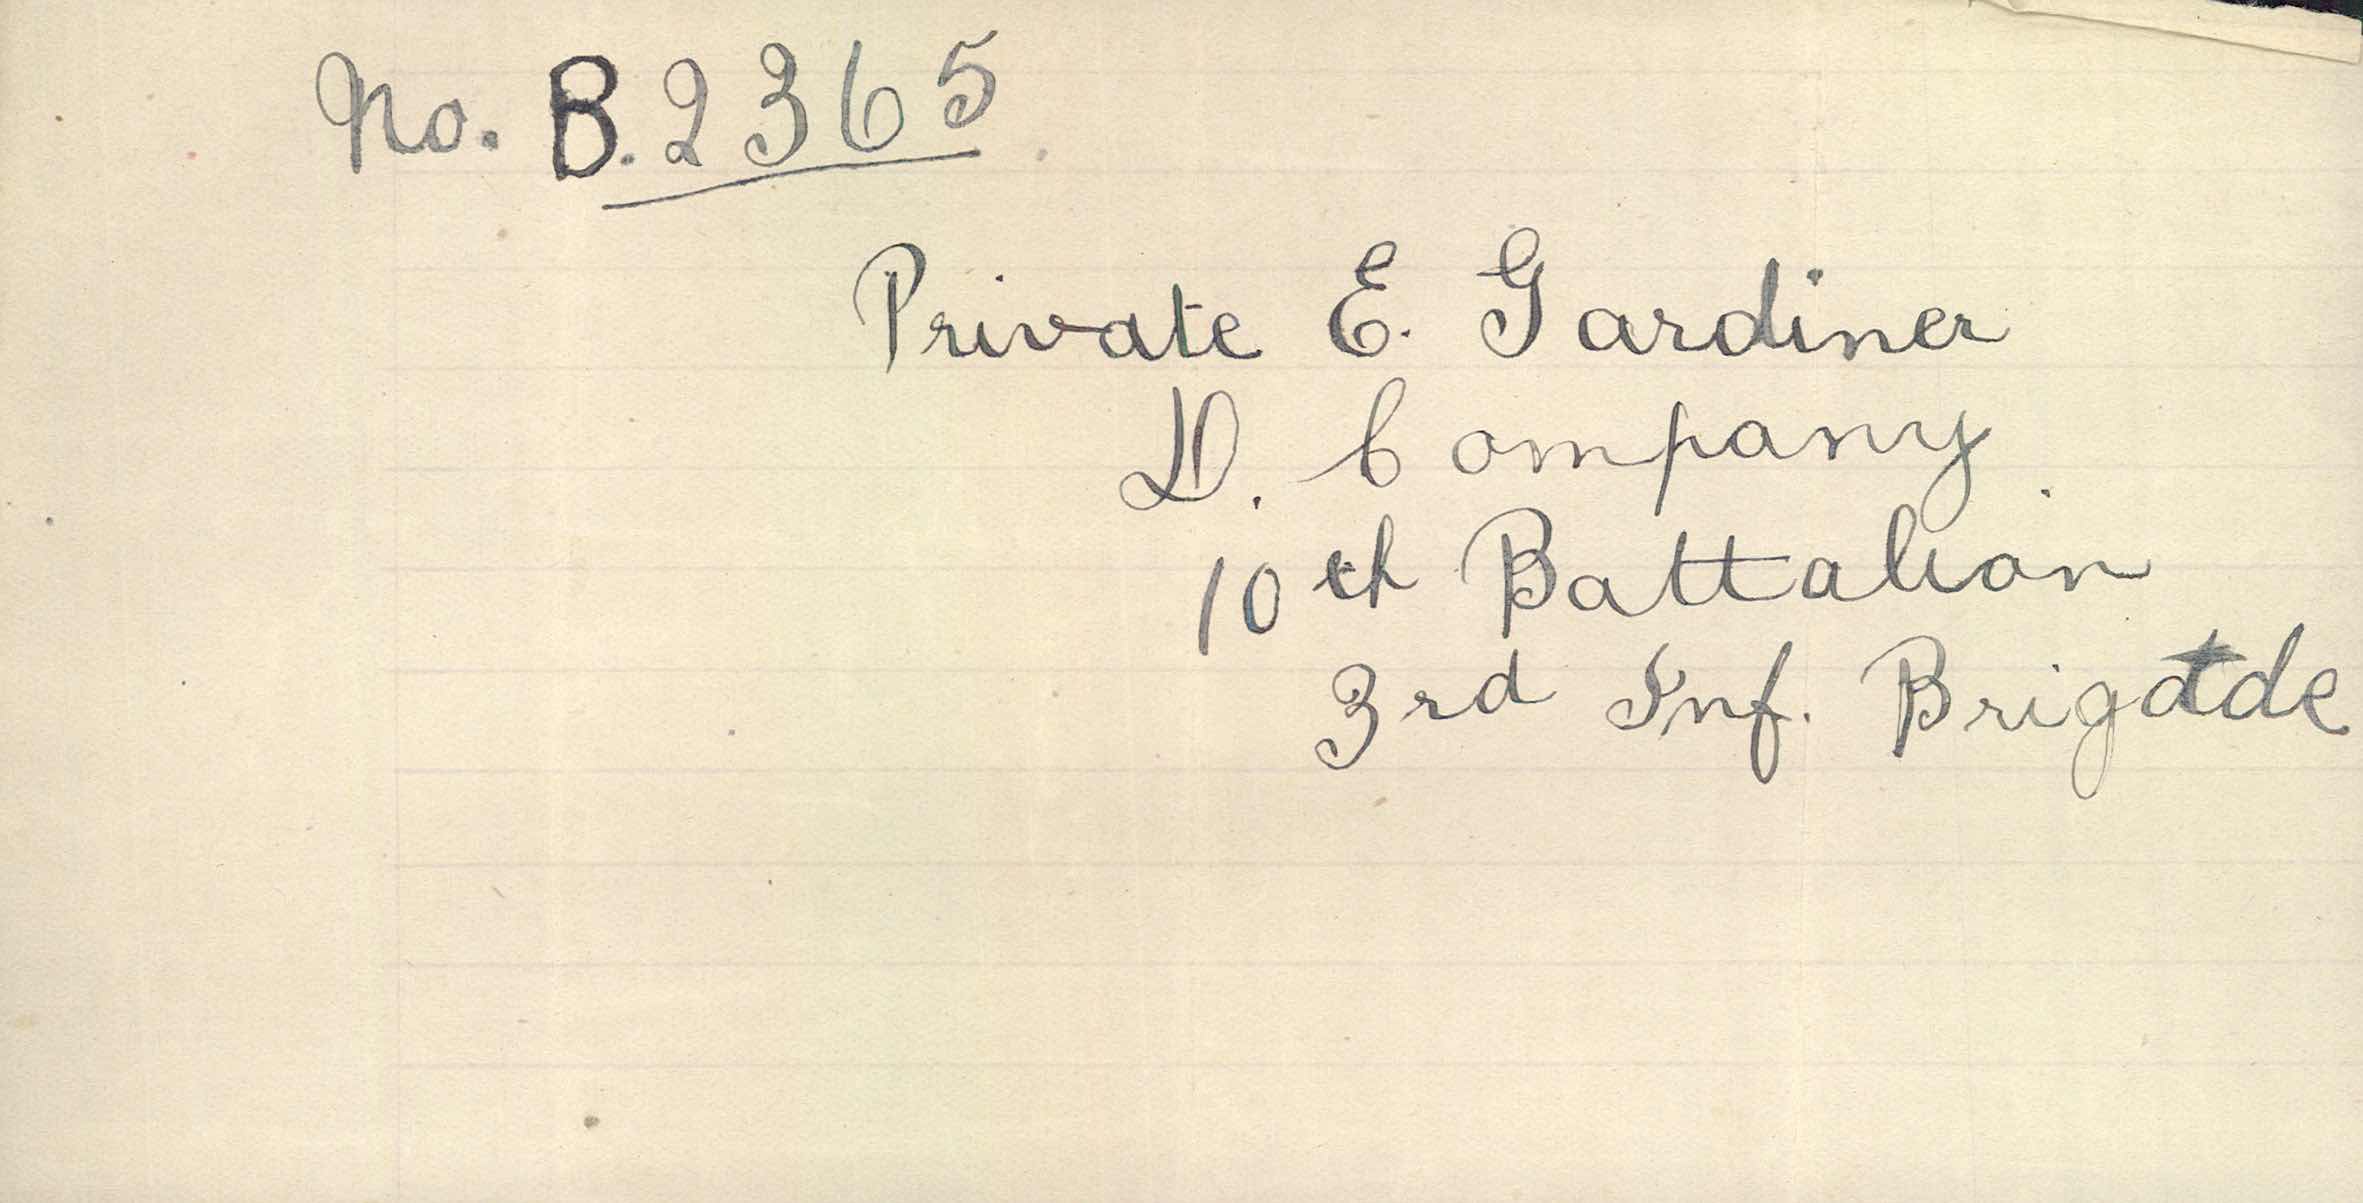 No. B.2365
Private E. Gardiner
D. Company
10th Battalion
3rd Inf. Brigade